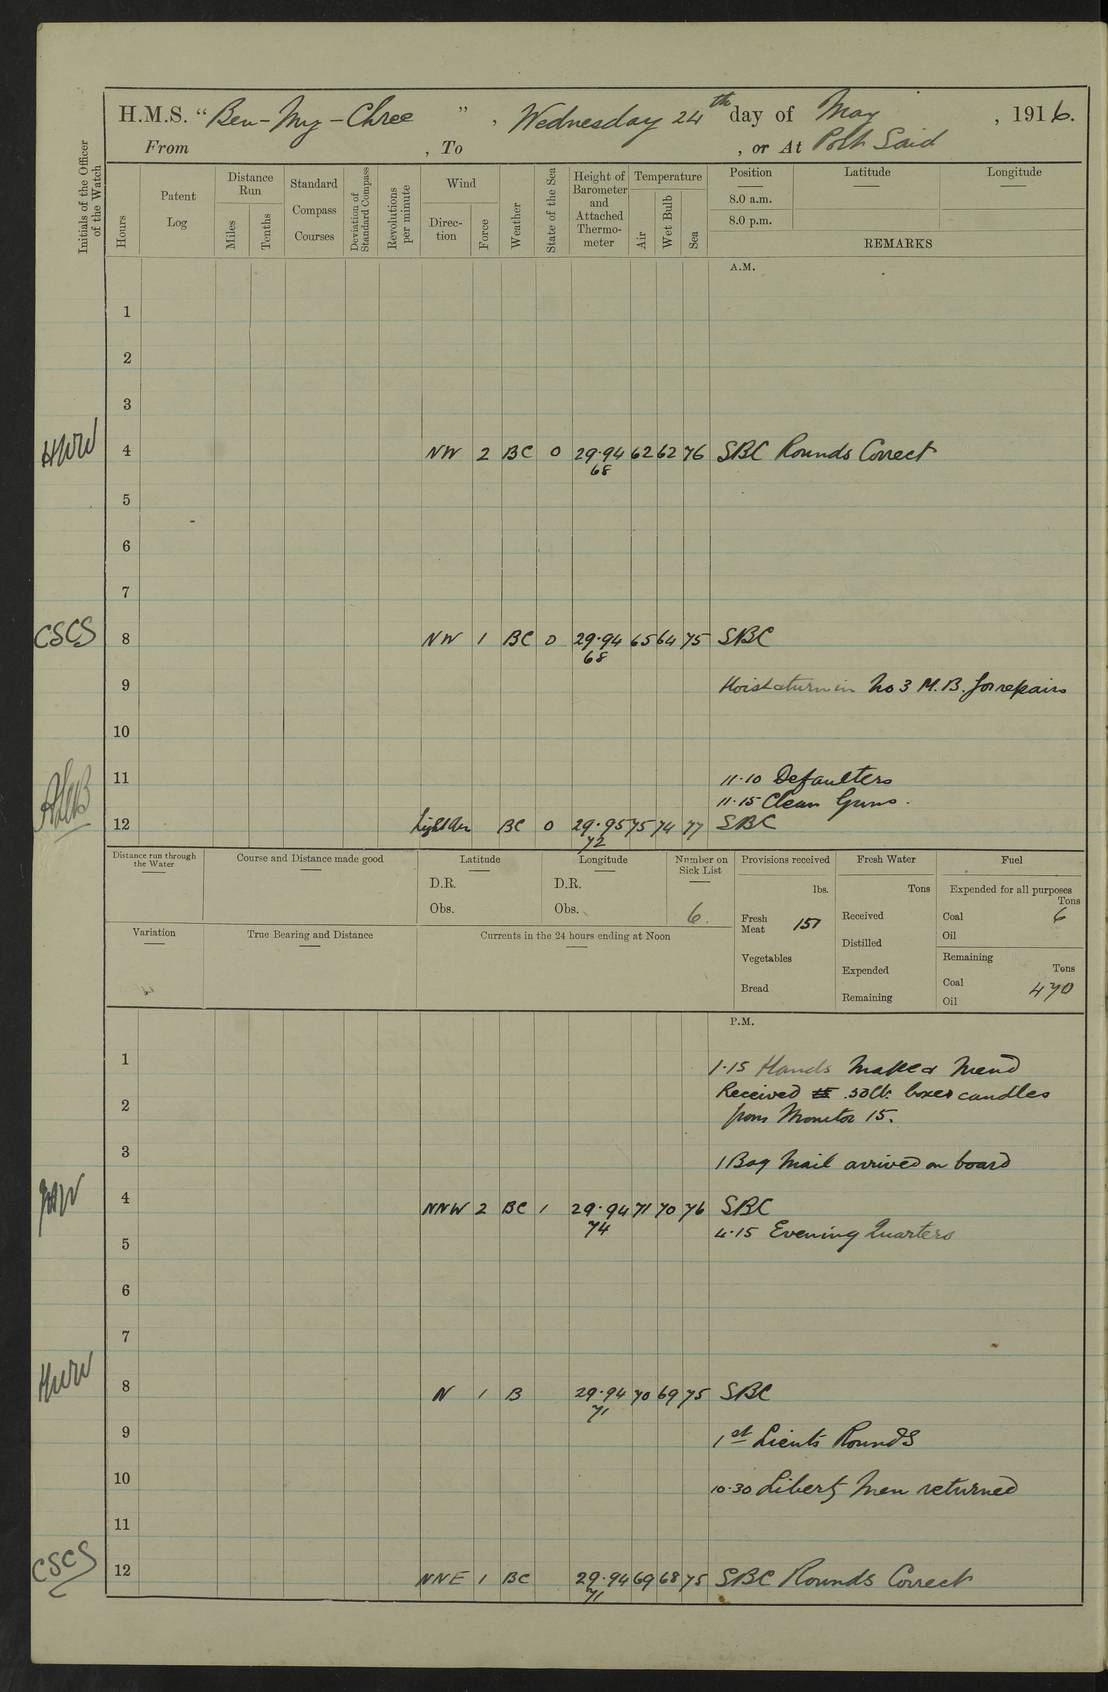 H.M.S. "Ben-My-Chree", Wednesday 24th day of May, 1916.
From , To , or At Port Said
Initials of the Officer of the Watch
Hours
Patent Log
Distance Run
Miles
Tenths
Standard Compass Courses
Deviation of Standard Compass
Revolutions per minute
Wind
Direction
Force
Weather
State of the Sea
Height of Barometer and Attached Thermometer
Temperature
Air
Wet Bulb
Sea
Position
8.0 a.m.
8.0 p.m.
Latitude
Longitude
REMARKS
A.M.
1
2
3
HWW 4 NW 2 BC 0 29.94 62 62 76 SBC Rounds Correct
68
5
6
7
CSCS 8 NW 1 BC 0 29.94 65 64 75 SBC
68
9 Hoist & turn in No 3 M.B. for repairs
10
11 11.10 Defaulters
11.15 Clean Guns.
12 Light Air BC 0 29.95 75 74 77 SBC
72
Distance run through the Water
Course and Distance made good
Latitude
D.R.
Obs.
Longitude
D.R.
Obs.
Number on Sick List
6.
Provisions received
lbs.
Fresh Meat 151
Vegetables
Bread
Fresh Water
Tons
Received
Distilled
Expended
Remaining
Fuel
Expended for all purposes
Tons
Coal 6
Oil
Remaining
Tons
Coal 470
Oil
Variation
True Bearing and Distance
Currents in the 24 hours ending at Noon
P.M.
1 1.15 Hands Make & Mend
Received boxes candles
2 from Monitor 15.
3 1 Bag Mail arrived on board
4 NNW 2 BC 1 29.94 71 70 76 SBC
74
4.15 Evening Quarters
5
6
7
HWW 8 N 1 B 29.94 70 69 75 SBC
71
9 1st Lieuts Rounds
10 10.30 Liberty Men returned
11
CSCS 12 NNE 1 BC 29.94 69 68 75 SBC Rounds Correct
71